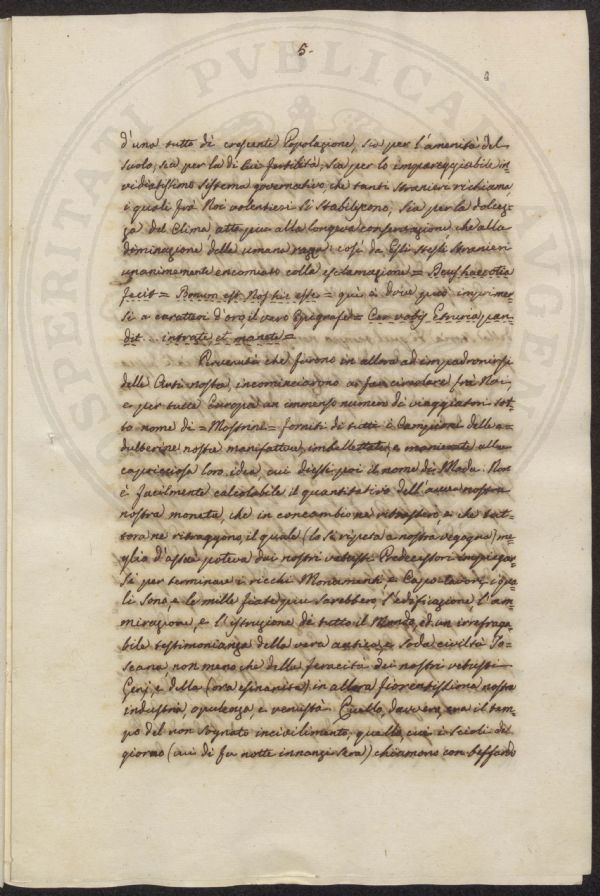 5.
4
d'una tutto dì crescente Popolazione, sia per l'amenità del
suolo, sia per la di lui fertilità, sia per lo impareggiabile in=
vidiatissimo sistema governativo, che tanti stranieri richiama,
i quali frà Noi volentieri si stabiliscono, sia per la dolcez=
za del Clima atto più alla longeva conservazione che alla
diminuzione della umana razza: così da Gli stessi stranieri
unanimemente encomiato colla esclamazione = Deus haec otia
fecit = Bonum est Nos hic esse = quì è dove può imprimer=
si a caratteri d'oro, il vero Epigrafe = Cur vobis Etruria, pan=
dit .. intrate et manete =
Pervenuti che furono in allora ad impadronirsi
delle Arti nostre, incominciarono a far circolare frà Noi,
e per tutta Europa un immenso numero di viaggiatori sot=
to nome di = Mostrini = forniti di tutti i Campioni delle a=
dulterine nostre manifatture, imbellettate, e manierate alla
capricciosa loro idea, cui diessi poi il nome di Moda. Non
è facilmente calcolabile il quantitativo dell' nostra
nostra moneta, che in concambio ne ritrassero, e che tut=
tora ne ritraggono, il quale (lo si ripeta a nostra vergogna) me=
glio d'assai poteva dai nostri vetusti Predecessori impiegar=
si per terminare i ricchi Monumenti, e Capo=lavori, i qua=
li sono, e le mille fiate più sarebbero, l'edificazione, l'am=
mirazione, e l'istruzione di tutto il Mondo, ed un irrefraga=
bile testimonianza della vera antica, e soda civiltà To=
scana, non meno che della feracità dei nostri vetusti
Genj, e della (ora esinanita) in allora fiorentissima nostra
industria, opulenza e venustà. Quello, davvero, era il tem=
po del non sognato incivilimento, quello, cui i scioli di
giorno (cui di fu notte innanzi sera) chiamano con beffardo